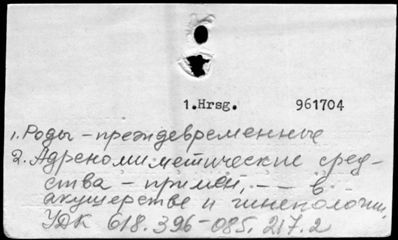 1.Hrsg. 961704
1. Роды – преждевременные
2. Адреномиметические сред-
ства – примен, – – в
акушерстве и гинекологии,
УДК 618.396-085.217.2